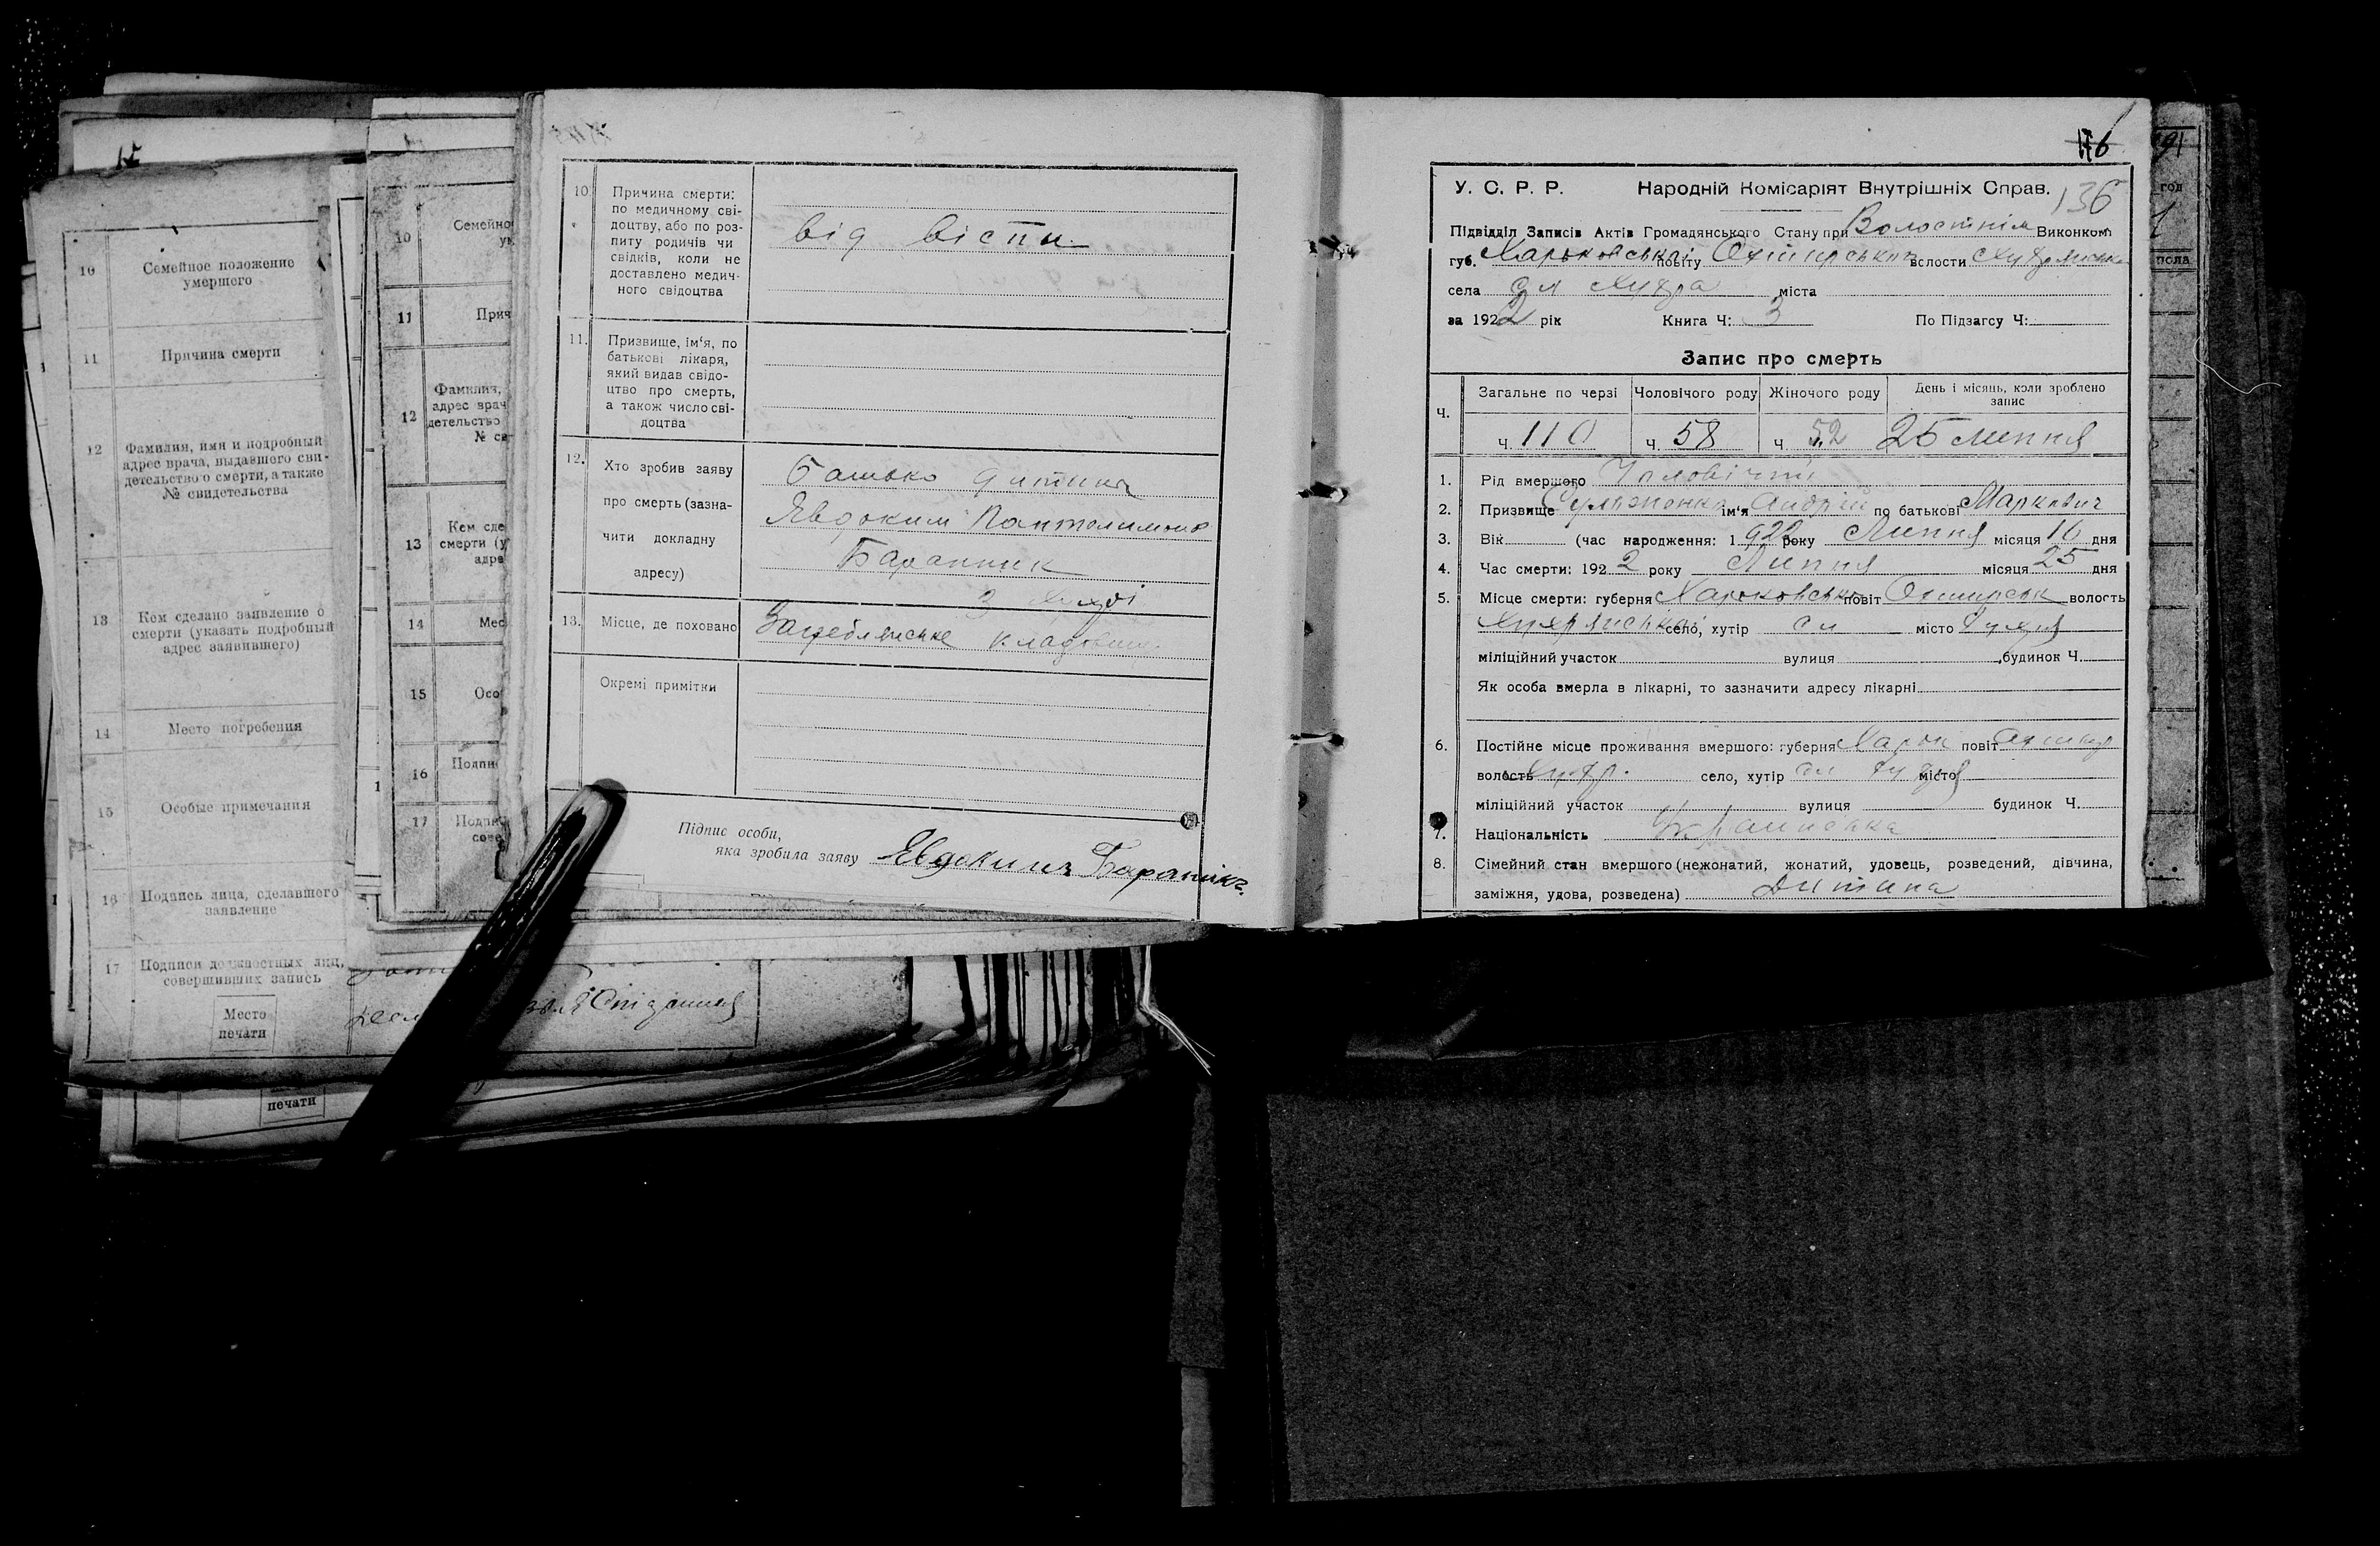 10
Семейное положение
умершего
11
Причина смерти
12
Фамилия, имя и подробный
адрес врача, выдавшего сви-
детельство о смерти, а также
№ свидетельства
13
Кем сделано заявление о
смерти (указать подробный
адрес заявившего)
14
Место погребения
15
Особые примечания
16
Подпись лица, сделавшего
заявление
17
Подписи должностных лиц,
совершивших запись
Место
печати
печати
10
Семейно
11
Прич
12
Фамилия,
адрес врач
детельство
№ св
13
Кем сде
смерти (у
адре
14
Мес
15
Осо
16
Подпи
17
Подпи
сове
10
Причина смерти:
по медичному сві-
доцтву, або по роз-
питу родичів чи
свідків, коли не
доставлено медич-
ного свідоцтва
від віспи
11.
Призвище, ім'я, по
батькові лікаря,
який видав свідо-
цтво про смерть,
а також число сві-
доцтва
12.
Хто зробив заяву
про смерть (зазна-
чити докладну
адресу)
Батько дитини
Явдоким Пантелимонов
Баранник
З
13.
Місце, де поховано
кладовище
Окремі примітки
Підпис особи,
яка зробила заяву Евдокимъ Бараникъ
176
136
У. С. Р. Р. Народній Комісаріят Внутрішніх Справ.
Підвідділ Записів Актів Громадянського Стану при Волостнім Виконкомі
губ. Харьковської повіту Охтирського волости
села сл міста
за 1922 рік Книга Ч: 3 По Підзагсу Ч:
Запис про смерть
Ч. Загальне по черзі Чоловічого роду Жіночого роду День і місяць, коли зроблено
запис
ч. 110 ч. 58 ч. 52 25 липня
1. Рід вмершого Чоловічий
2. Призвище ім'я Андрій по батькові Маркович
3. Вік (час народження: 1922 року Липня місяця 10 дня
4. Час смерти: 1922 року Липня місяця 25 дня
5. Місце смерти: губерня Харьковська повіт Охтирськ волость
село, хутір сл місто
міліційний участок вулиця будинок Ч.
Як особа вмерла в лікарні, то зазначити адресу лікарні
6. Постійне місце проживання вмершого: губерня Харьк повіт Охтир
волость село, хутір сл місто
міліційний участок вулиця будинок Ч.
7. Національність Українська
8. Сімейний стан вмершого (нежонатий, жонатий, удовець, розведений, дівчина,
заміжня, удова, розведена) Дитина
91
год
пола